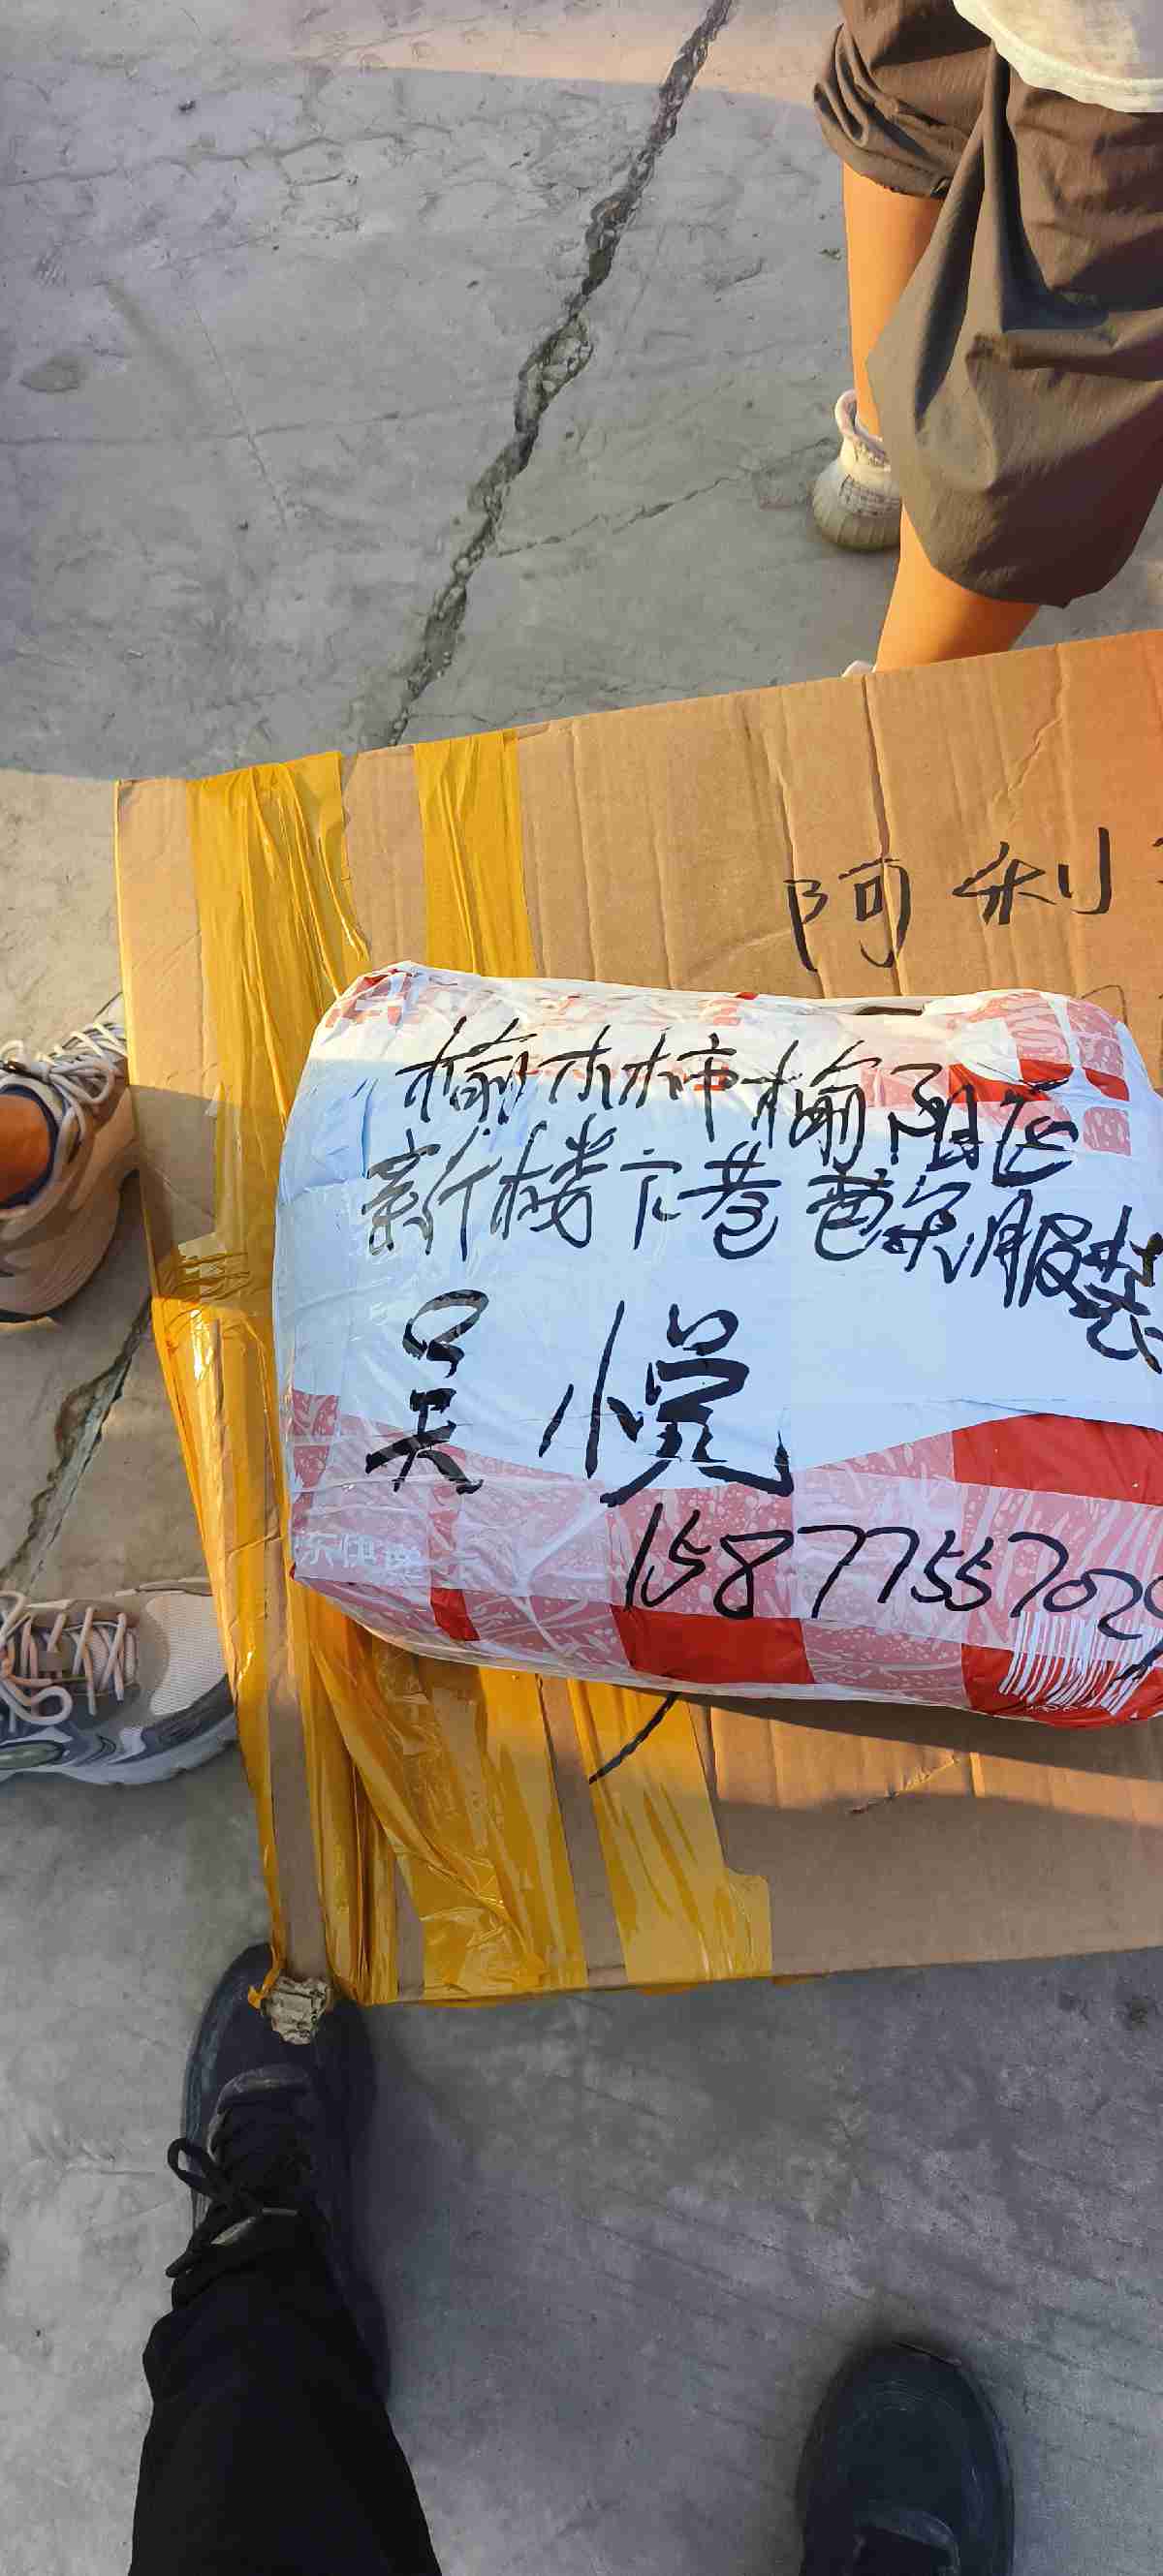 阿利
榆林市榆阳区
新楼下巷芭朵服装
吴悦
15877557029